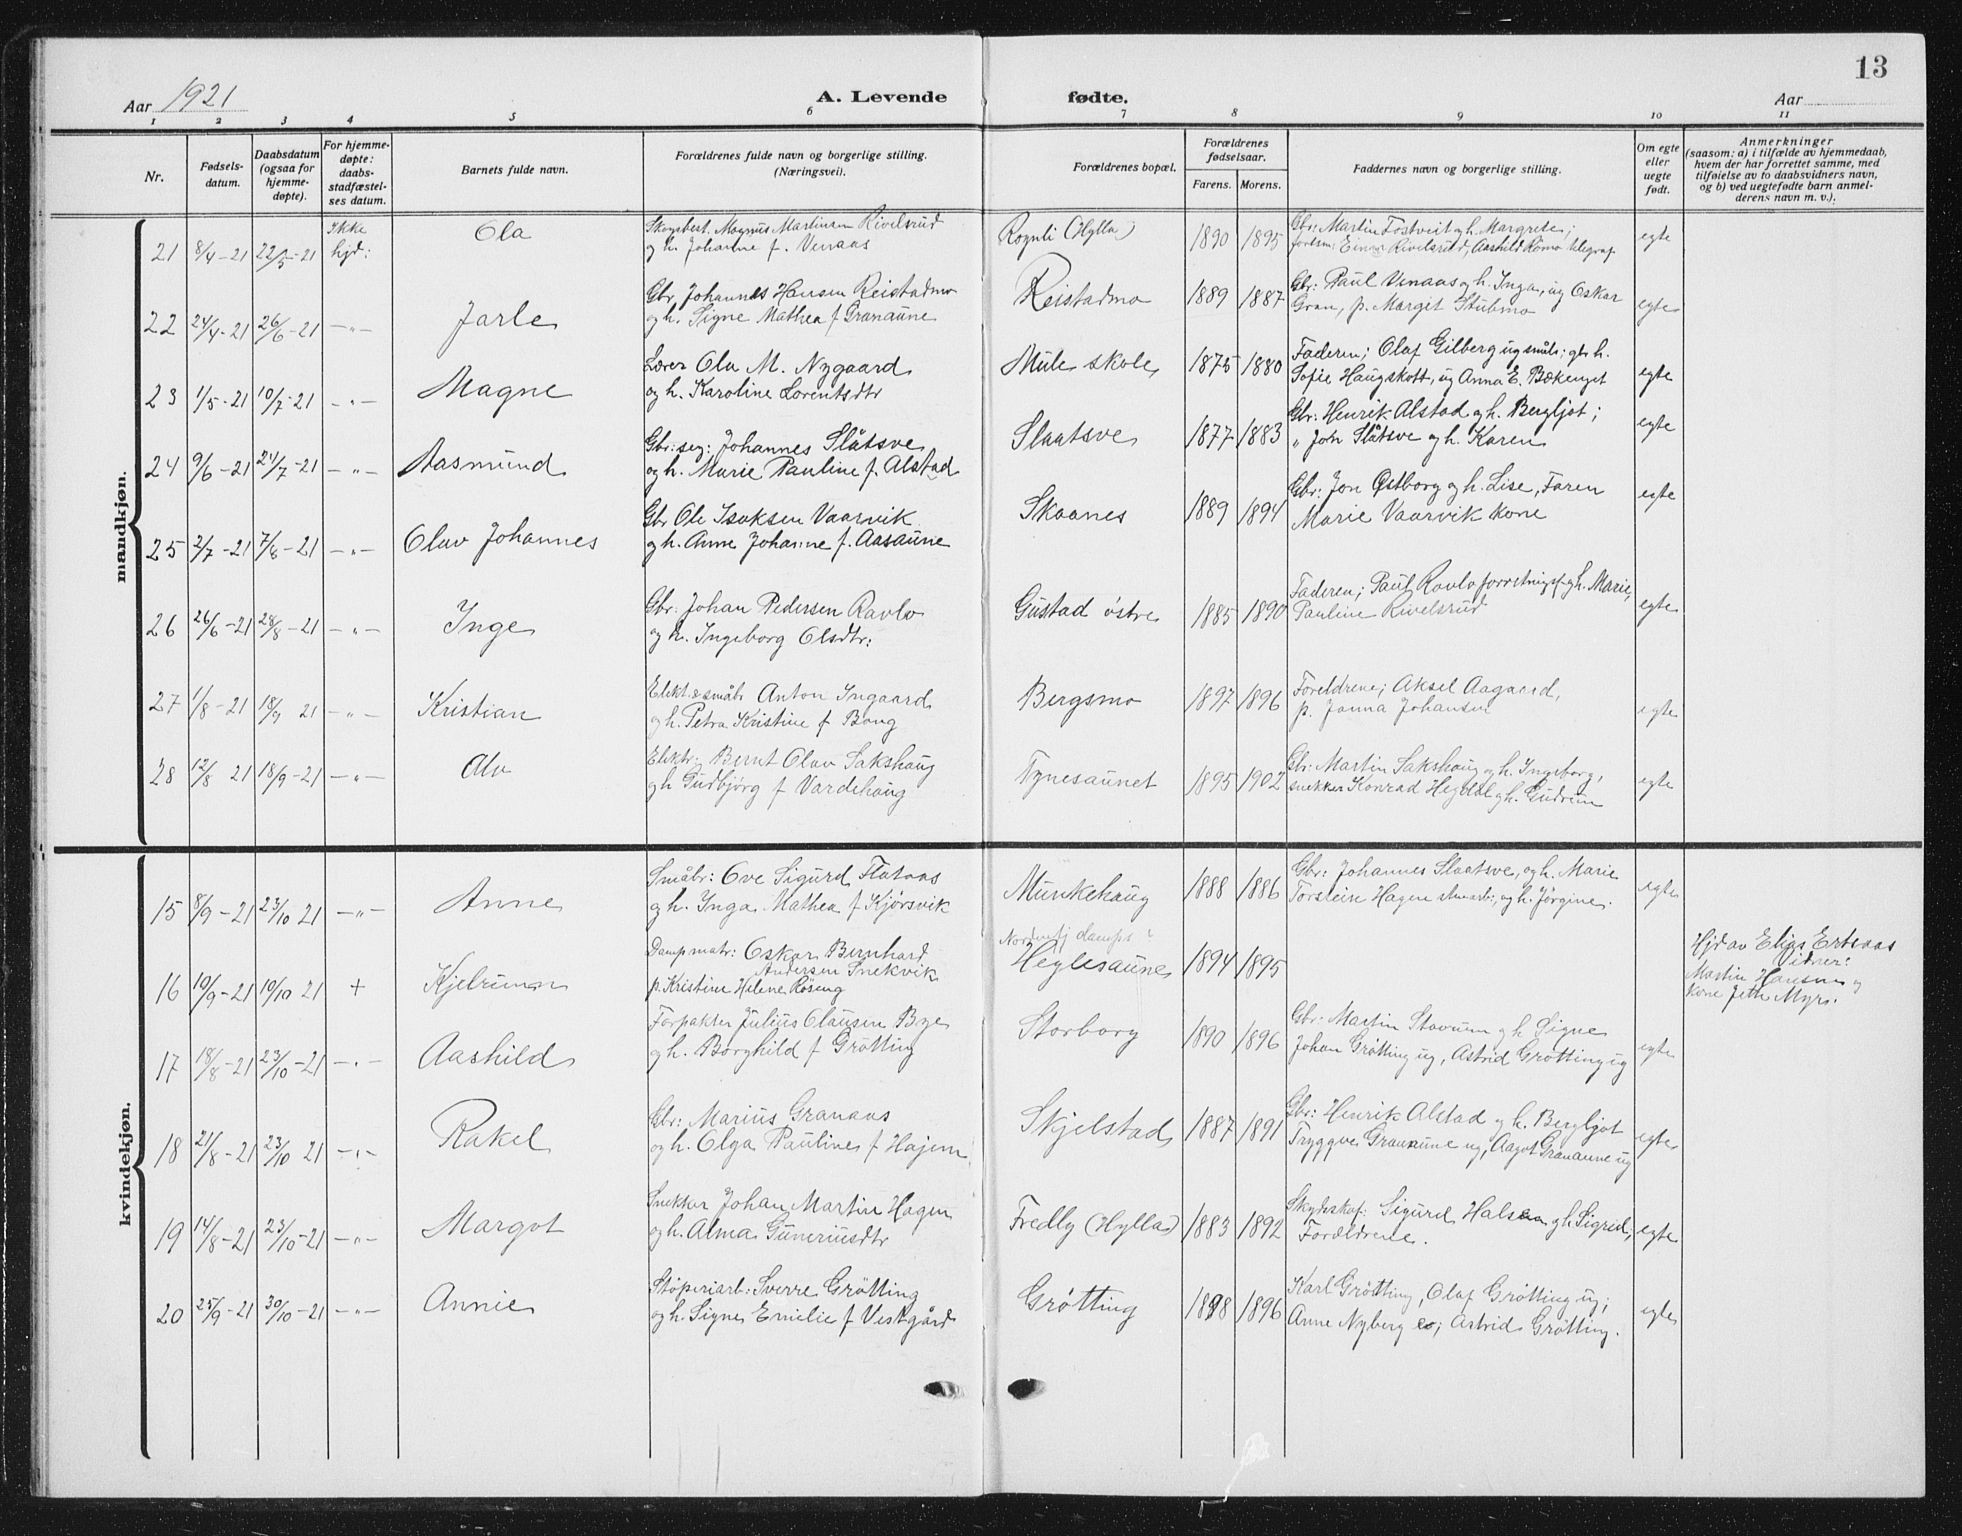 13
Aar 1921
A. Levende
fødte.
Aar
1 2 3 4 5 6 7 8 9 10 11
Nr.
Fødsels-
datum.
Daabsdatum
(ogsaa for
hjemme-
døpte).
For hjemme-
døpte:
daabs-
stadfæstel-
ses datum.
Barnets fulde navn.
Forældrenes fulde navn og borgerlige stilling.
(Næringsvei).
Forældrenes bopæl.
Forældrenes
fødselsaar.
Farens. Morens.
Faddernes navn og borgerlige stilling.
Om egte
eller
uegte
født.
Anmerkninger
(saasom: a) i tilfælde av hjemmedaab,
hvem der har forrettet samme, med
tilføielse av to daabsvidners navn,
og b) ved uegtefødte barn anmel-
derens navn m. v.).
mandkjøn.
21 8/4-21 22/5-21 Ikke hjd: Ola
Skogsbert. Magnus Martinsen Rivelsrud
og h. Johanne f. Venaas
Rognli (Hylla) 1890 1895
Gbr. Martin Tostveit og h. Margrete;
Einar Rivelsrud, Aashild Rømo telegraf.
egte
22 24/4-21 26/6-21 -"- Jarle
Gbr. Johannes Hansen Reistadmo
og h. Signe Mathea f Granaune
Reistadmo 1889 1887
Gbr: Paul Venaas og h. Inga, ug Oskar
Gran, p. Margit Stubmo
egte
23 1/5-21 10/7-21 -"- Magne
Lærer Ola M. Nygaard
og h. Karoline Lorentsdtr
Mule skole 1875 1880
Faderen; Olaf Gilberg ug småb; gbr h.
Sofie Haugskott, ug Anna E. Bækenget
egte
24 9/6-21 24/7-21 -"- Aasmund
Gbr: seg: Johannes Slåtsve
og h. Marie Pauline f. Alstad
Slaatsve 1877 1883
Gbr: Henrik Alstad og h. Bergljot;
" John Slåtsve og h. Karen
egte
25 2/7-21 7/8-21 -"- Olav Johannes
Gbr Ole Isaksen Vaarvik
og h. Anne Johanne f. Aasaune
Skaanes 1889 1894
Gbr: Jon Østborg og h. Lise, Faren
Marie Vaarvik kone
egte
26 26/6-21 28/8-21 -"- Inge
Gbr: Johan Pedersen Ravlo
og h. Ingeborg Olsdtr:
Gustad østre 1885 1890
Faderen; Paul Ravlo forretningsf. og h. Marie,
Pauline Rivelsrud
egte
27 1/8-21 18/9 21 -"- Kristian
Elekt. & småbr Anton Ingaard
og h. Petra Kristine f Bang
Bergsmo 1897 1896
Foreldrene; Aksel Aagaard,
p. Janna Johansen
egte
28 12/8 21 18/9-21 -"- Alv
Elektr: Bernt Olav Sakshaug
og h Gudbjørg f Vardehaug
Tynesaunet 1895 1902
Gbr: Martin Sakshaug og h. Ingeborg,
snekker Konrad Hegdal og h. Gudrun
egte
kvindekjøn.
15 8/9-21 23/10 21 -"- Anne
Småbr: Ove Sigurd Flataas
og h. Inga Mathea f Kjørsvik
Munkehaug 1888 1886
Gbr: Johannes Slaatsve, og h. Marie
Torstein Hagen, og h. Jørgine.
egte
16 10/9-21 19/10 21 + Kjelrunn
Dampmatr: Oskar Bernhard
Andersen Snekvik
p. Kristine Helene Roseng
Heglesaune 1894 1895
Hjd av Elias Ertsaas
Vidner:
Martin Hansen og
kone Jette Myrs.
17 18/8-21 23/10-21 -"- Aashild
Forpakter Julius Clausen Bye
og h. Borghild f Grøtting
Storborg 1890 1896
Gbr: Martin Stavrum og h Signe
Johan Grøtting ug, Astrid Grøtting ug
egte
18 21/8-21 23/10 21 -"- Rakel
Gbr: Marius Granaas
og h. Olga Pauline f Hojem
Skjelstad 1887 1891
Gbr: Henrik Alstad og h. Bergljot
Tryggve Granaune ug, Aagot Granaune ug
egte
19 14/8-21 23/10-21 -"- Margot
Snekker Johan Martin Hagen
og h. Alma Guneriusdtr
Fredly (Hylla) 1883 1892
Skydsskaf: Sigurd Halsan og h Sigrid;
Forældrene.
egte
20 25/9-21 30/10-21 -"- Annie
Støperiarb: Sverre Grøtting
og h. Signe Emelie f Vestgård
Grøtting 1898 1896
Karl Grøtting, Olaf Grøtting ug;
Anne Nyberg; Astrid Grøtting.
egte